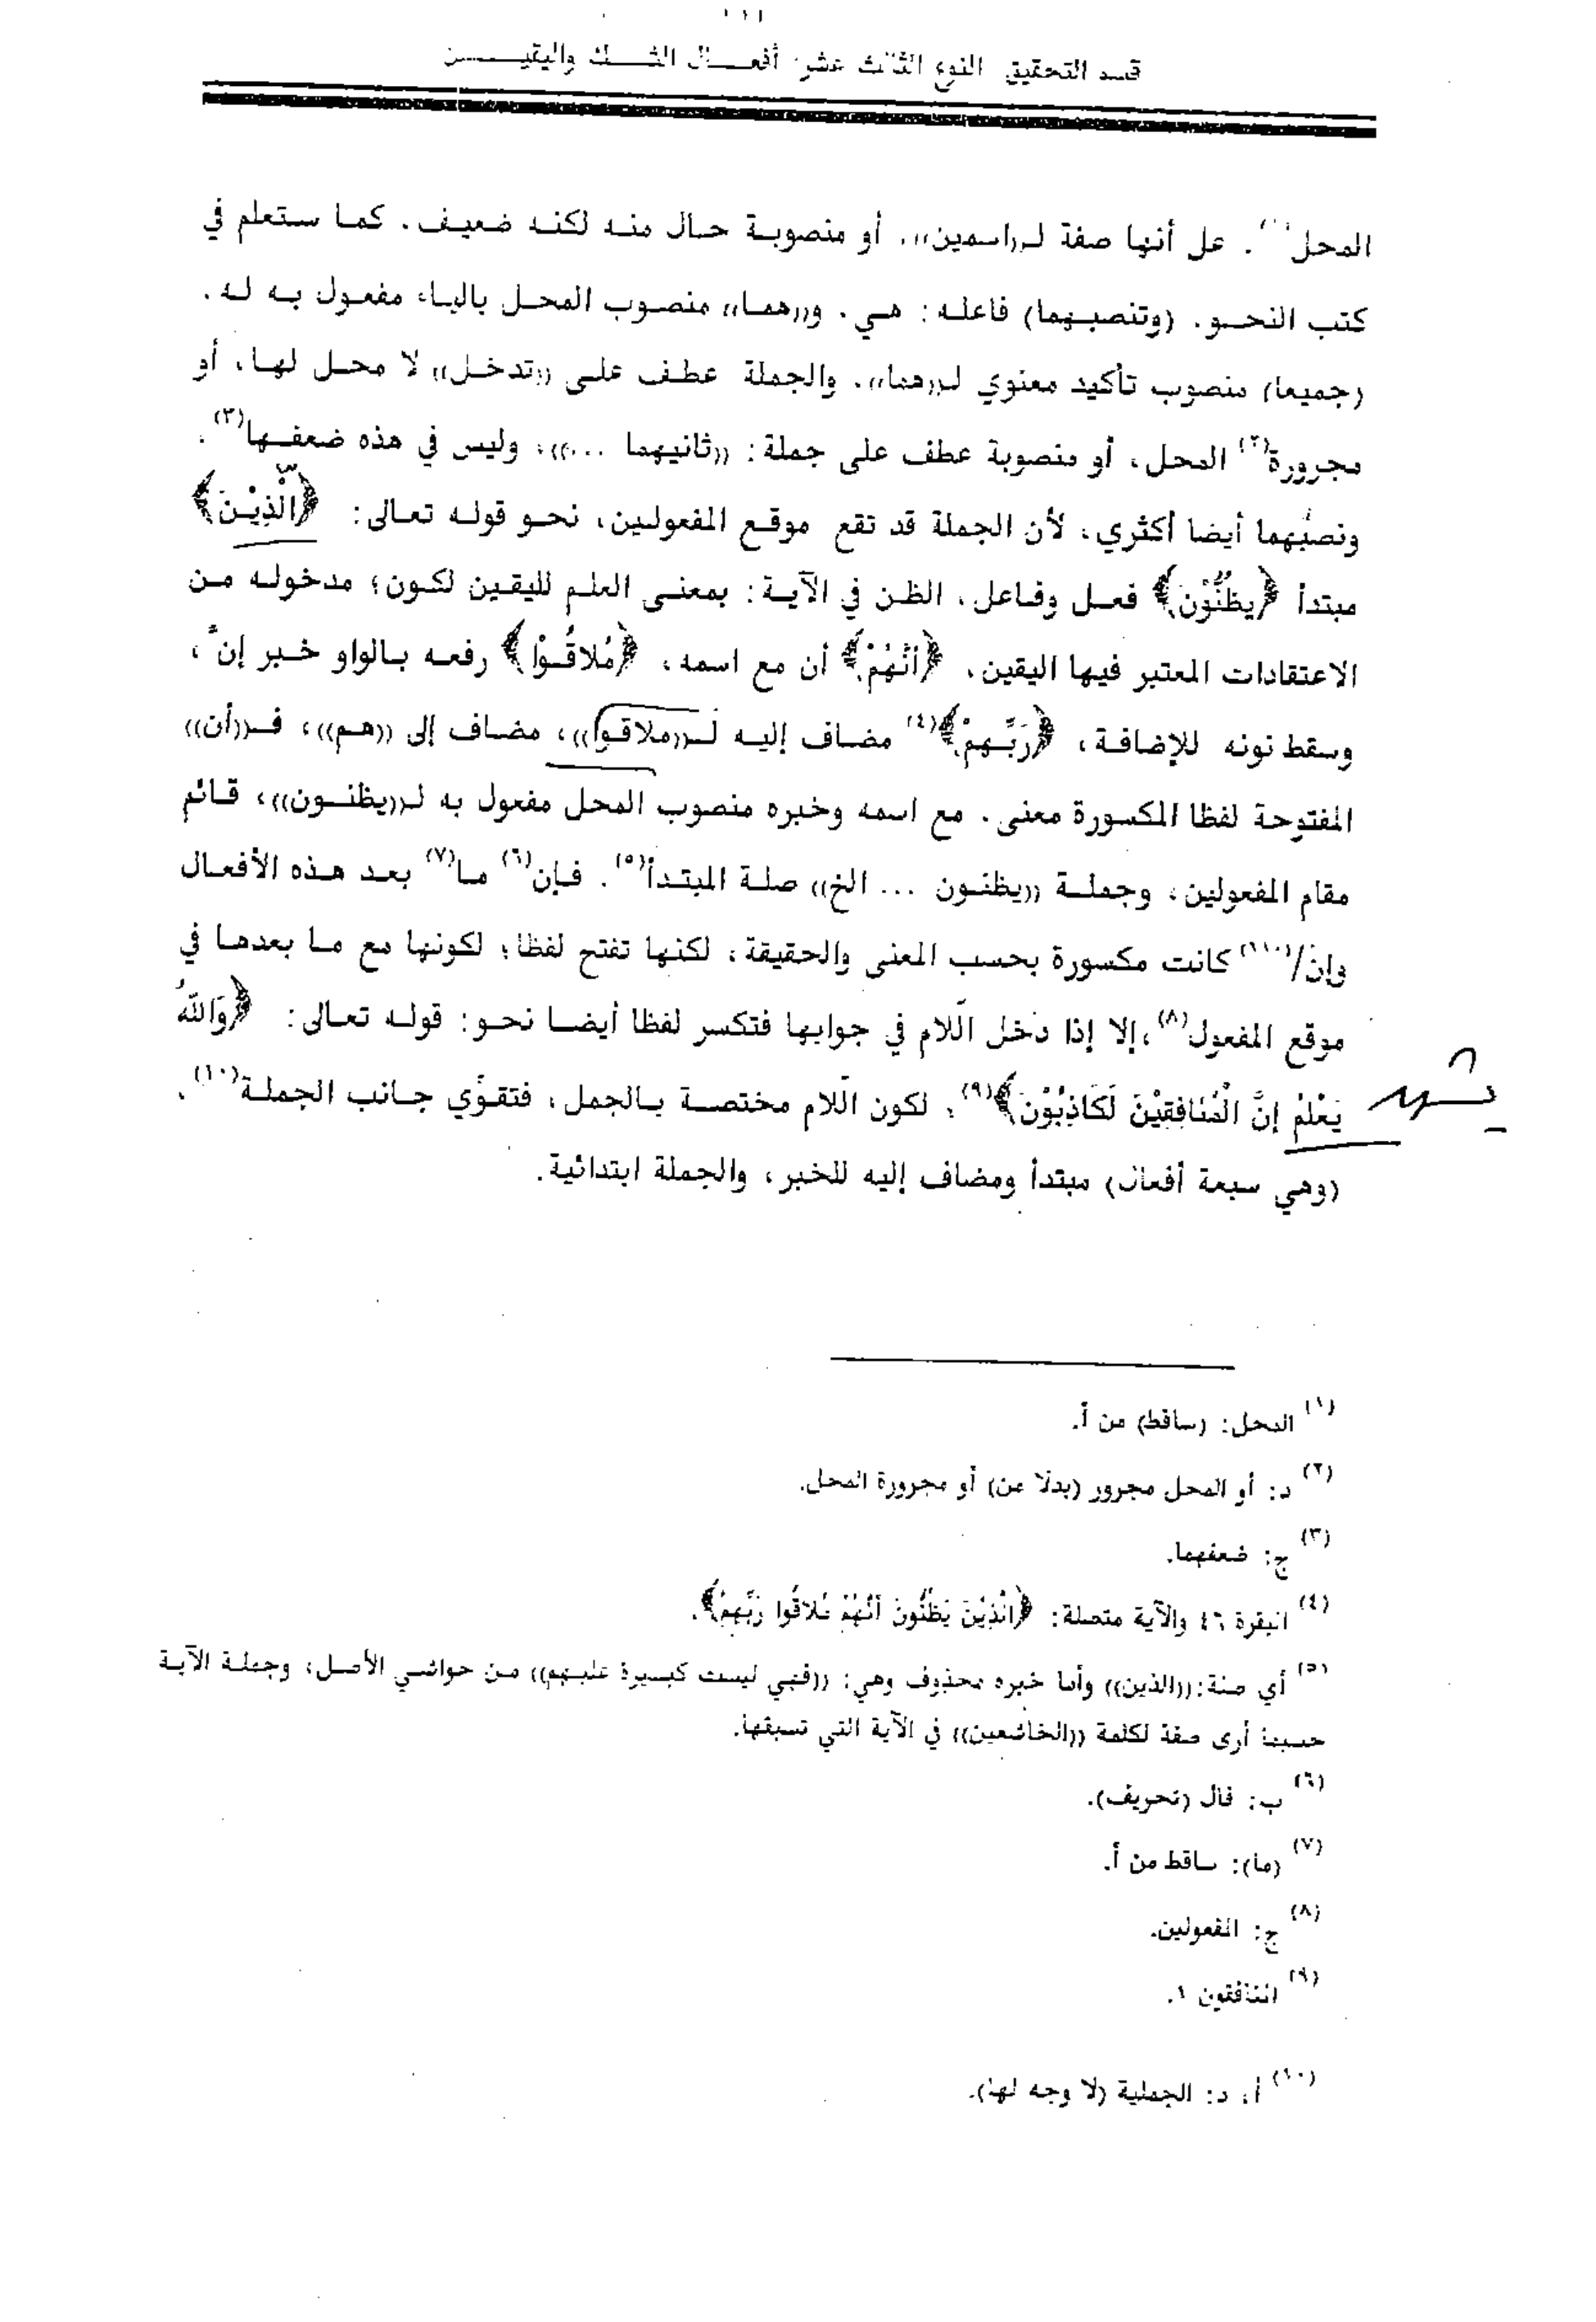 قسم التحقيق النوع الثالث عشر: أفعـــال الشـــك واليقيـــن
المحل(١). على أنها صفة لـ((اسمين))، أو منصوبة حال منه لكنه ضعيف. كما ستعلم في
كتب النحو. (وتنصبهما) فاعله: هي. و((هما)) منصوب المحل بالياء مفعول به له.
(جميعا) منصوب تأكيد معنوي لـ((هما)). والجملة عطف على ((تدخل)) لا محل لها، أو
مجرورة(٢) المحل، أو منصوبة عطف على جملة: ((ثانيهما ...))، وليس في هذه ضعفها(٣).
ونصبُهما أيضا أكثري، لأن الجملة قد تقع موقع المفعولين، نحو قوله تعالى: ﴿الَّذِيْنَ﴾
مبتدأ ﴿يظُنُّوْنَ﴾ فعل وفاعل. الظن في الآية: بمعنى العلم لليقين لكون؛ مدخوله من
الاعتقادات المعتبر فيها اليقين. ﴿أَنَّهُمْ﴾ أن مع اسمه، ﴿مُلاقُوْا﴾ رفعه بالواو خبر إنَّ،
وسقط نونه للإضافة، ﴿رَبِّهِمْ﴾(٤) مضاف إليه لـ((ملاقوا))، مضاف إلى ((هم))، فـ((أن))
المفتوحة لفظا المكسورة معنى. مع اسمه وخبره منصوب المحل مفعول به لـ((يظنون))، قائم
مقام المفعولين، وجملة ((يظنون ... الخ)) صلة المبتدأ(٥). فإن(٦) ما(٧) بعد هذه الأفعال
وإن/(١١٠) كانت مكسورة بحسب المعنى والحقيقة، لكنها تفتح لفظا؛ لكونها مع ما بعدها في
موقع المفعول(٨)، إلا إذا دخل الّلام في جوابها فتكسر لفظا أيضا نحو: قوله تعالى: ﴿وَاللهُ
يَعْلَمُ إِنَّ الْمُنَافِقِيْنَ لَكَاذِبُوْنَ﴾(٩)، لكون الّلام مختصة بالجمل، فتقوّي جانب الجملة(١٠).
(وهي سبعة أفعال) مبتدأ ومضاف إليه للخبر، والجملة ابتدائية.
(١) المحل: (ساقط) من أ.
(٢) د: أو المحل مجرور (بدلا عن) أو مجرورة المحل.
(٣) ج: ضعفهما.
(٤) البقرة ٤٦ والآية متصلة: ﴿الَّذِيْنَ يَظُنُّونَ أَنَّهُمْ مُلاقُوا رَبِّهِمْ﴾.
(٥) أي صلة: ((الذين)) وأما خبره محذوف وهي: ((فهي ليست كبيرة عليهم)) من حواشي الأصل، وجملة الآية
حسبما أرى صفة لكلمة ((الخاشعين)) في الآية التي تسبقها.
(٦) ب: قال (تحريف).
(٧) (ما): ساقط من أ.
(٨) ج: المفعولين.
(٩) المنافقون ١.
(١٠) أ، د: الجملية (لا وجه لها).